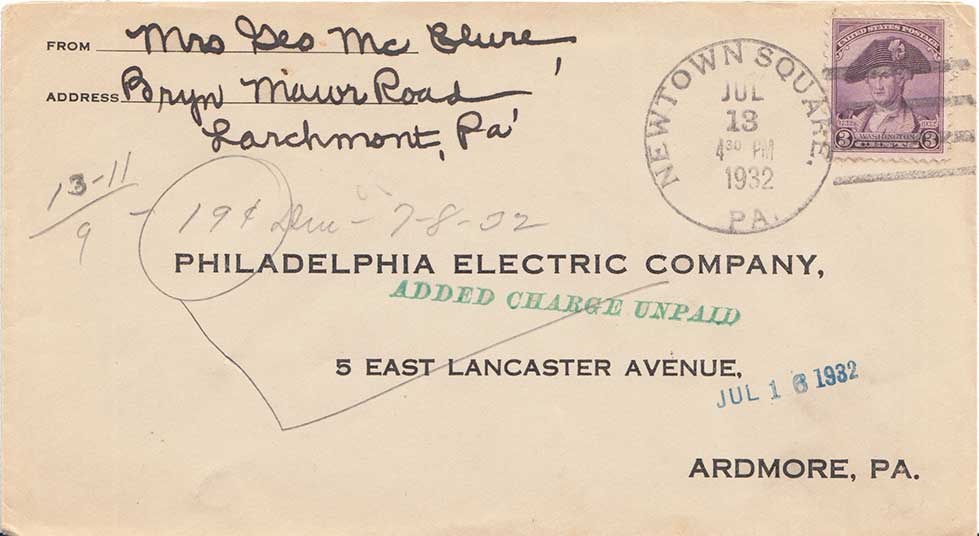 FROM Mrs Geo Mc Clure
ADDRESS Bryn Mawr Road
Larchmont, Pa
NEWTOWN SQUARE.
JUL
13
4 30 PM
1932
PA.
UNITED STATES POSTAGE
1732 1932
3 WASHINGTON 3
CENTS
13-11
9 - 19¢ Due - 7-8-32
PHILADELPHIA ELECTRIC COMPANY,
ADDED CHARGE UNPAID
5 EAST LANCASTER AVENUE,
JUL 16 1932
ARDMORE, PA.